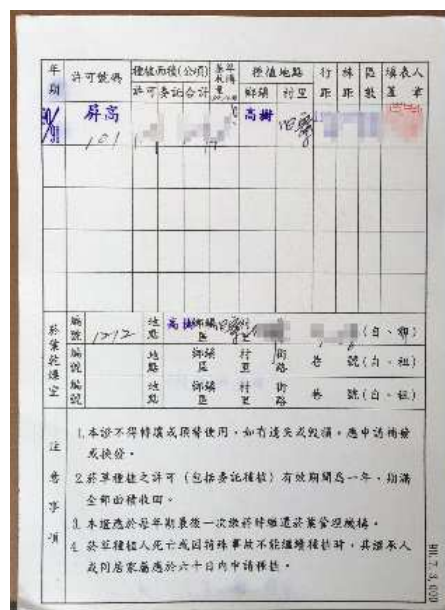 年期 許可號碼 種植面積(公頃) 種植地點 行距 株距 區數 填表人蓋章
許可 委託 合計 鄉鎮 村里
90/91 屏高 高樹
101
菸葉乾燥室
編號 1212 地點 高樹 鄉鎮區 村里 (自、租)
編號 地點 鄉鎮區 村里 街路 巷 號(自、租)
編號 地點 鄉鎮區 村里 街路 巷 號(自、租)
注意事項
1. 本證不得轉讓或頂替使用,如有遺失或毀損,應申請補發
或換份。
2. 菸草種植之許可(包括委託種植)有效期間為一年,期滿
全部面積收回。
3. 本證應於每年期最後一次繳菸時繳還菸葉管理機構。
4. 菸草種植人死亡或因特殊事故不能繼續種植時,其繼承人
或同居家屬應於六十日內申請種植。